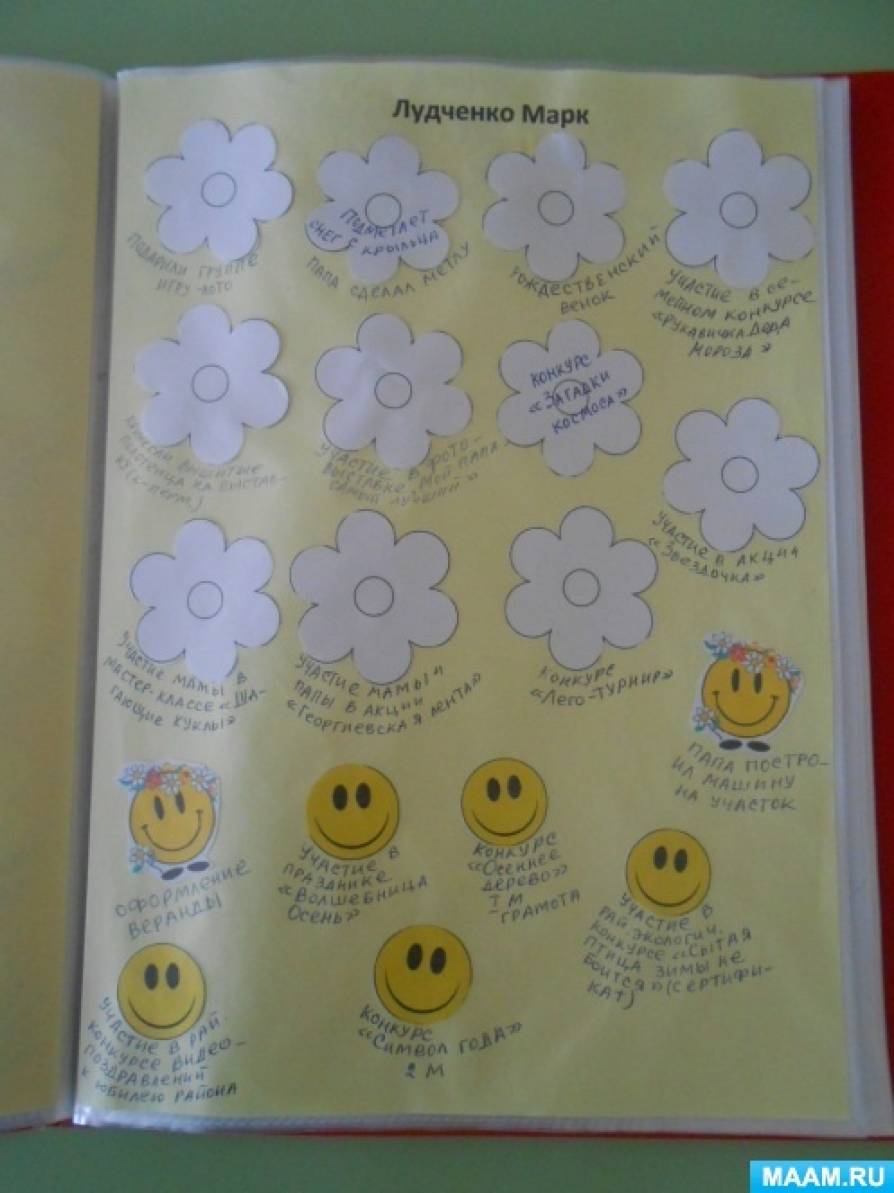 Лудченко Марк
Подарили группе
игру-лото
Подметает
снег с крыльца
Папа сделал метлу
Рождественский
венок
Участие в се-
мейном конкурсе
«Рукавичка Деда
Мороза»
вышитые
полотенца на выстав-
ку
Участие в фото-
выставке „Мой папа
самый лучший"
Конкурс
«Загадки
космоса»
Участие в акции
«Звездочка»
Участие мамы в
мастер-классе «Ша-
гающие куклы»
Участие мамы и
папы в акции
«Георгиевская лента»
Конкурс
«Лего-турнир»
Папа постро-
ил машину
на участок
Оформление
веранды
Участие в
празднике
«Волшебница
Осень»
Конкурс
«Осеннее
дерево»
I м
грамота
Участие в
рай. экологич.
конкурсе «Сытая
птица зимы не
боится» (сертифи-
кат)
Участие в рай.
конкурсе видео-
поздравлений
к юбилею района
Конкурс
«Символ года»
2 м
MAAM.RU